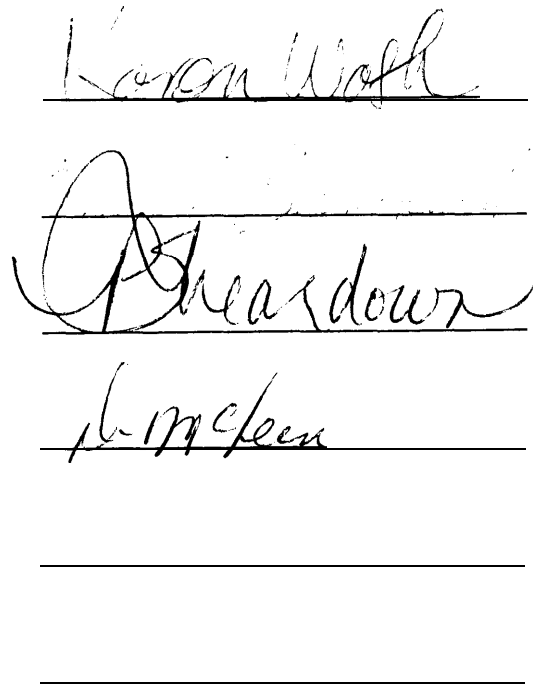 Karen Wash
Sheardown
McLean